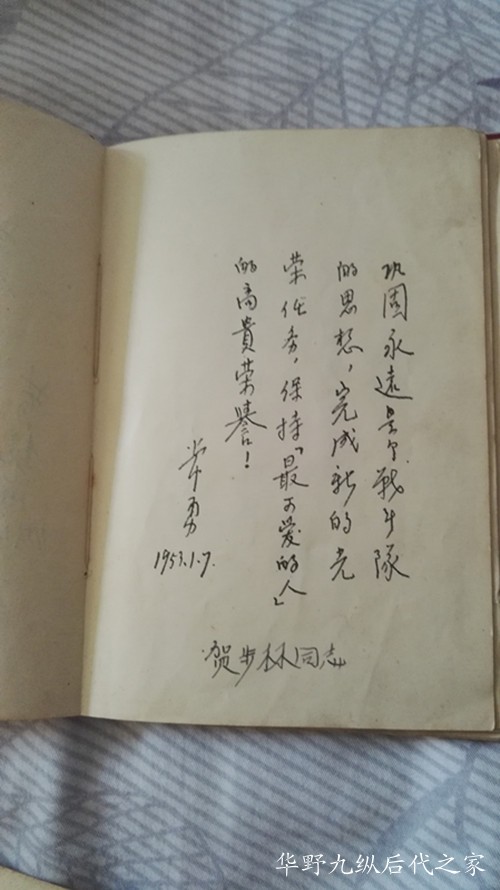 巩固永遠是个戰斗隊
的思想，完成新的光
荣任务，保持「最可爱的人」
的高貴荣譽！
常勇
1953.1.7.
贺步林同志
华野九纵后代之家